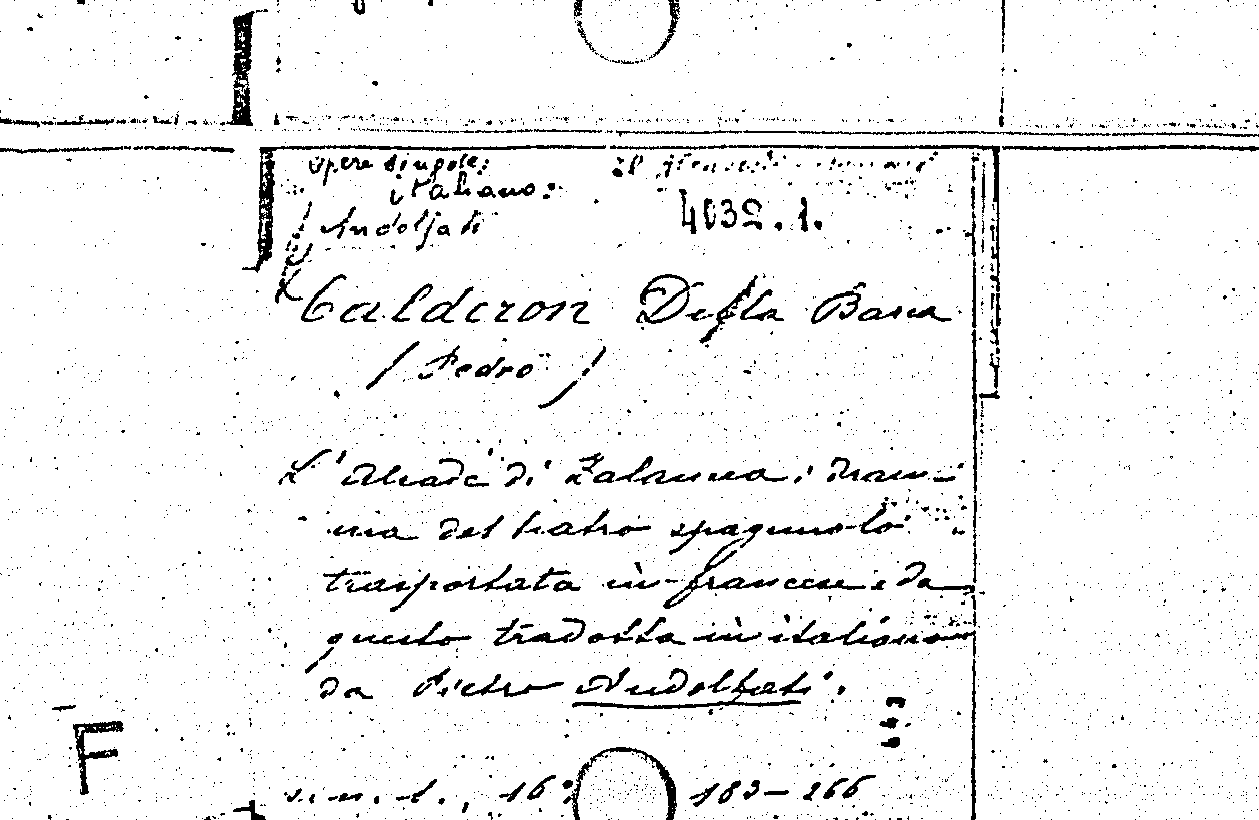 opere singole:
italiano:
Andolfati
4032.1.
Calderon Della Barca
(Pedro)
L'Alcade di Zalamea, dram-
ma del teatro spagnuolo
trasportata in francese e da
questo tradotta in italiano
da Pietro Andolfati.
F
s.n.t., 16° 183-266